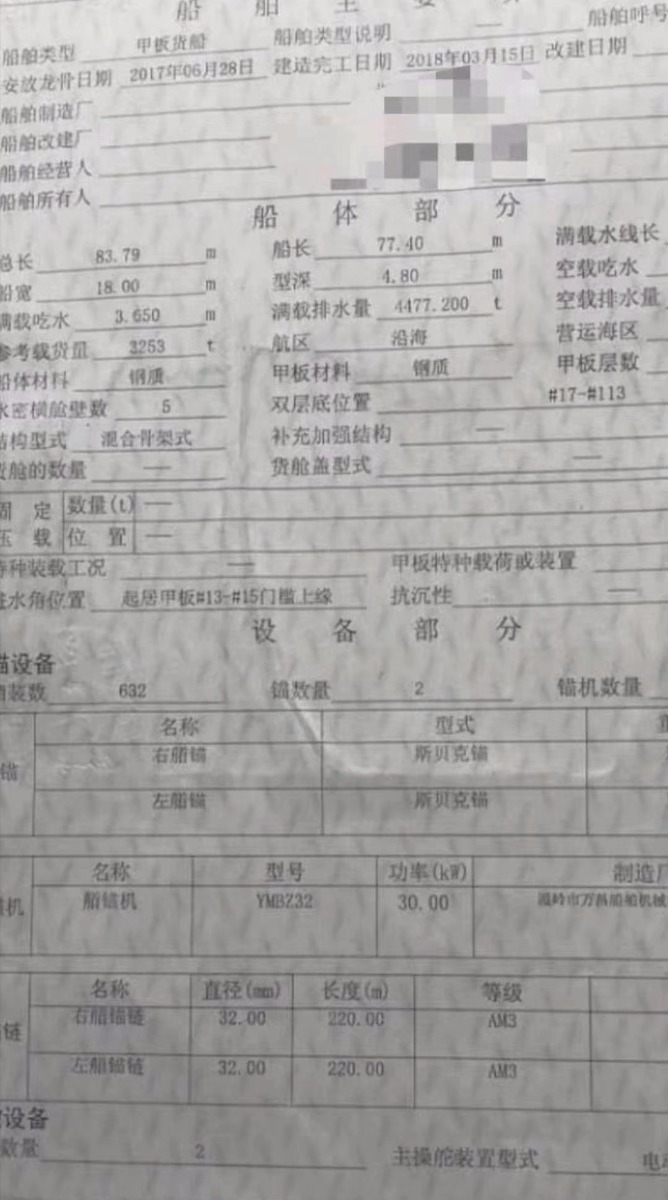 船 舶 主 要
船舶类型 甲板货船 船舶类型说明 — 船舶呼号
安放龙骨日期 2017年06月28日 建造完工日期 2018年03月15日 改建日期
船舶制造厂
船舶改建厂
船舶经营人
船舶所有人
船 体 部 分
总长 83.79 m 船长 77.40 m 满载水线长
船宽 18.00 m 型深 4.80 m 空载吃水
满载吃水 3.650 m 满载排水量 4477.200 t 空载排水量
参考载货量 3253 t 航区 沿海 营运海区
船体材料 钢质 甲板材料 钢质 甲板层数
水密横舱壁数 5 双层底位置 #17-#113
结构型式 混合骨架式 补充加强结构 —
货舱的数量 — 货舱盖型式 —
固 定 数量(t) —
压 载 位 置 —
特种装载工况 — 甲板特种载荷或装置
进水角位置 起居甲板#13-#15门槛上缘 抗沉性 —
设 备 部 分
锚设备
舾装数 632 锚数量 2 锚机数量
名称 型式
锚 右艏锚 斯贝克锚
左艏锚 斯贝克锚
名称 型号 功率(kW) 制造厂
机 艏锚机 YMBZ32 30.00 温岭市万昌船舶机械
名称 直径(mm) 长度(m) 等级
链 右艏锚链 32.00 220.00 AM3
左艏锚链 32.00 220.00 AM3
设备
数量 2 主操舵装置型式 电